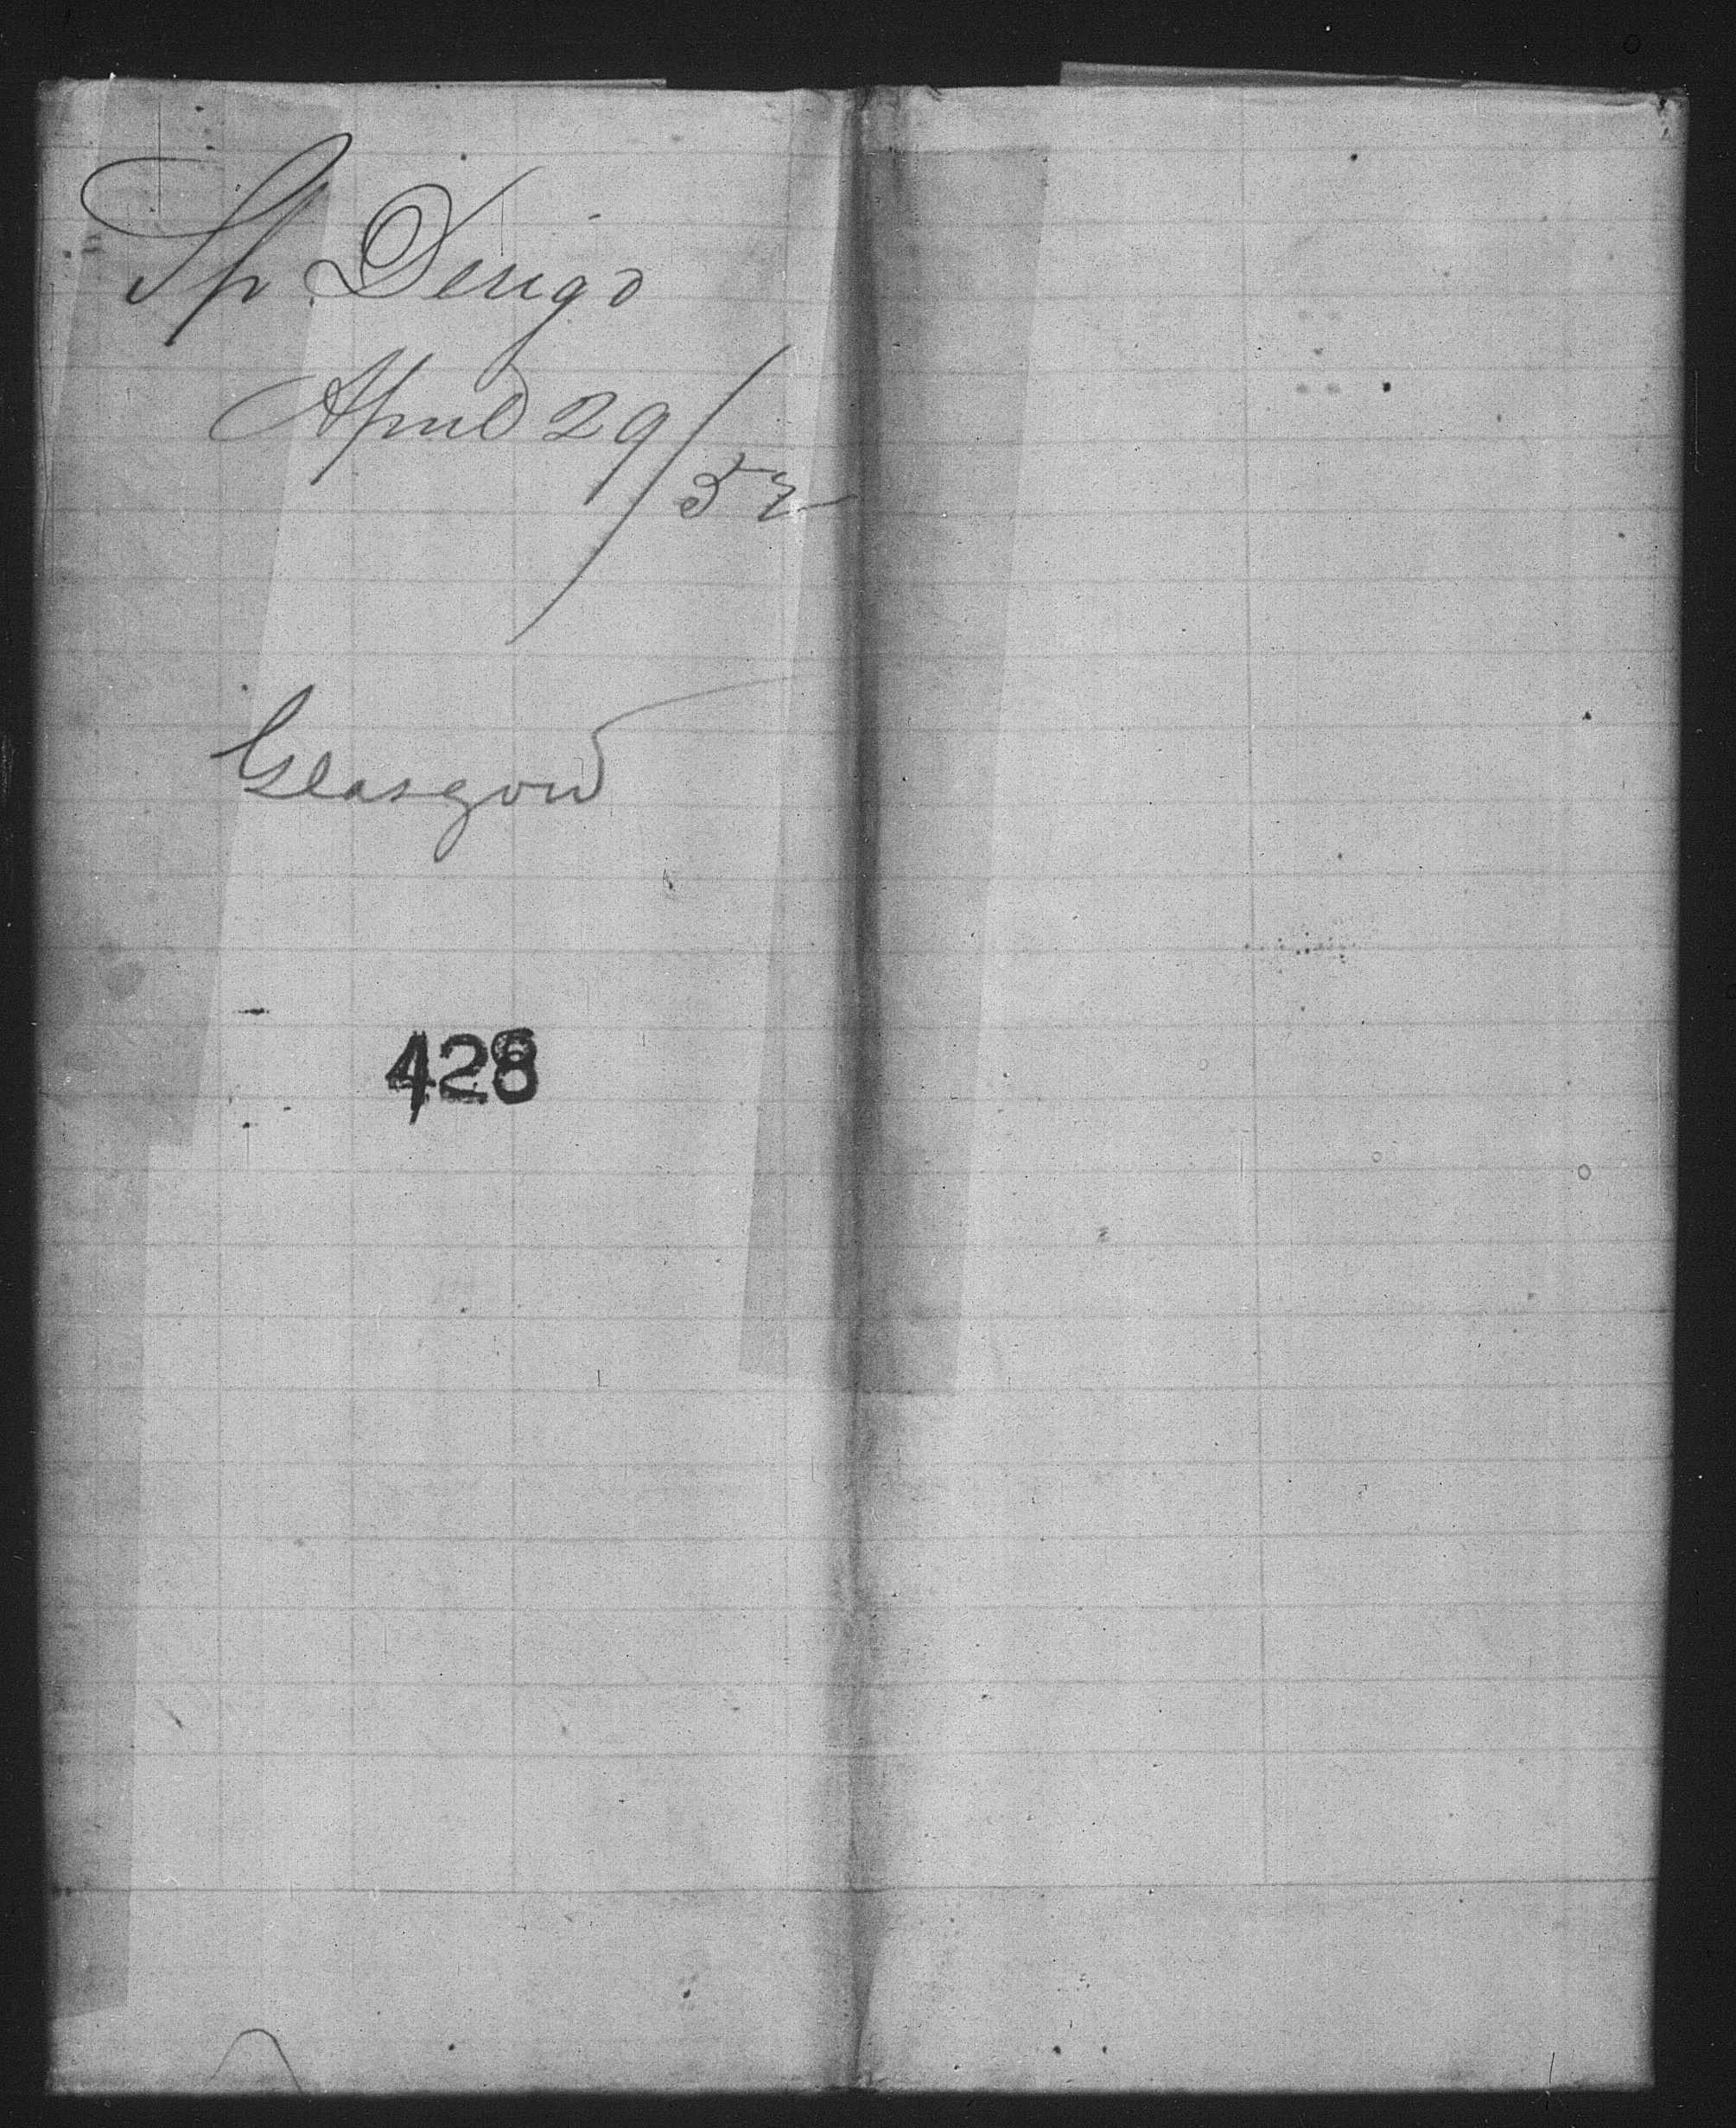 Sp Desigo
April 29/52
Glasgow
428